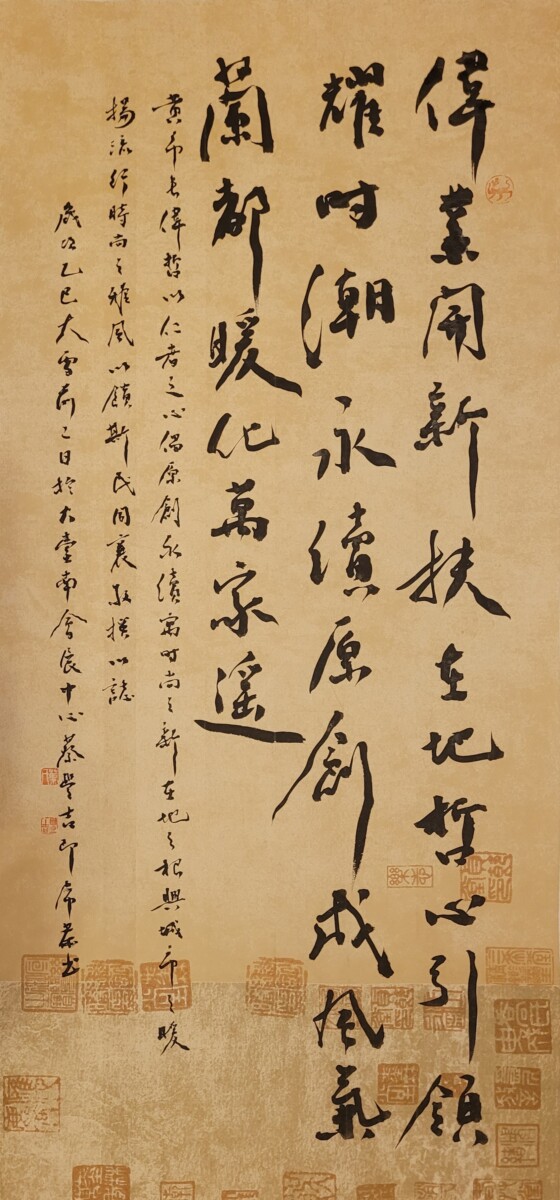 偉業開新扶在地哲心引領
耀时潮永續原創成風氣
蘭都暖化萬家遥
黃市長偉哲以仁者之心倡原創永續寓时尚之新在地之根與城市之暖
揚流行時尚之雅風以饋斯民同襄敬撰以誌
歲次乙巳大雪前二日於大臺南會展中心蔡豐吉即席恭書